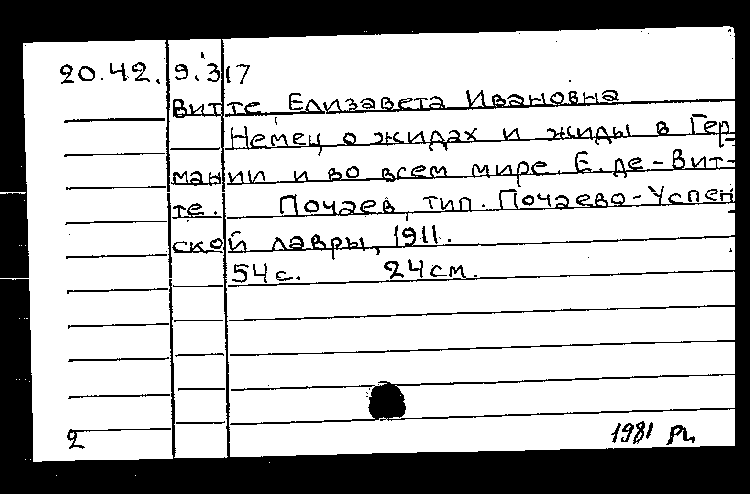 20.42.9.317
Витте, Елизавета Ивановна
Немец о жидах и жиды в Гер
мании и во всем мире. Е. де-Вит-
те. Почаев, тип. Почаево-Успен
ской лавры, 1911.
54 с. 24 см.
2 1981